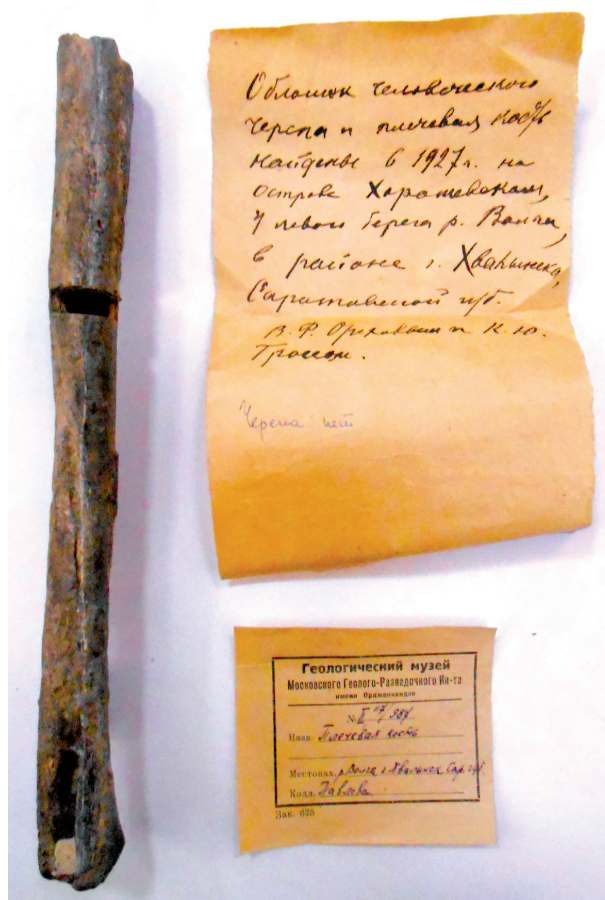 Обломок человеческого
черепа и плечевая кость
найдены в 1927 г. на
острове Хорошевском,
у левого берега р. Волги,
в районе г. Хвалынска,
Саратовской губ.
В. Ф. Ореховым и К. Ю.
Троссом.
Черепа нет
Геологический музей
Московского Геолого-Разведочного Ин-та
имени Орджоникидзе
№
Назв. Плечевая кость
Местонах. р. Волга г. Хвалынск Сар. губ.
Колл. Павлова
Зак. 625